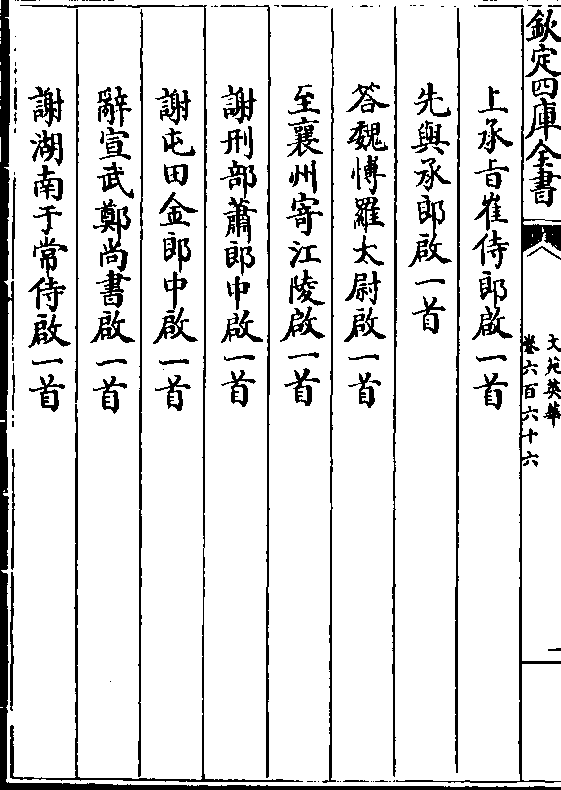 欽定四庫全書
文苑英華
卷六百六十六
一
上承旨崔侍郎啟一首
先與承郎啟一首
答魏博羅太尉啟一首
至襄州寄江陵啟一首
謝刑部蕭郎中啟一首
謝屯田金郎中啟一首
辭宣武鄭尚書啟一首
謝湖南于常侍啟一首